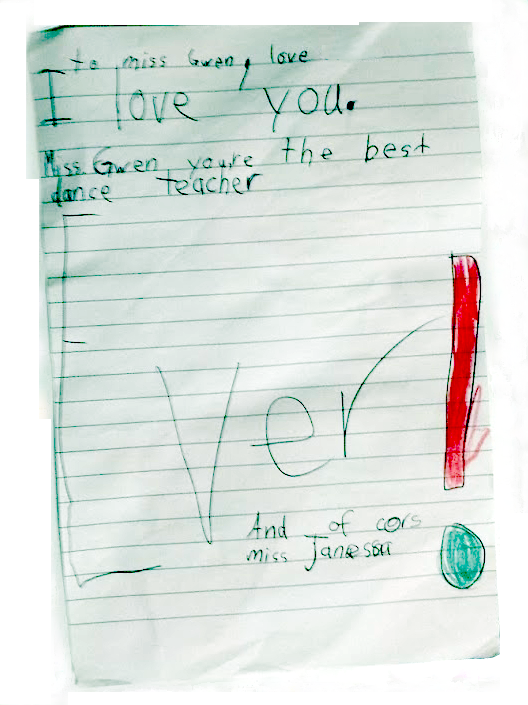 to miss Gwen, love
I love you.
Miss Gwen you're the best
dance teacher
Ever!
And of cors
miss Janeson